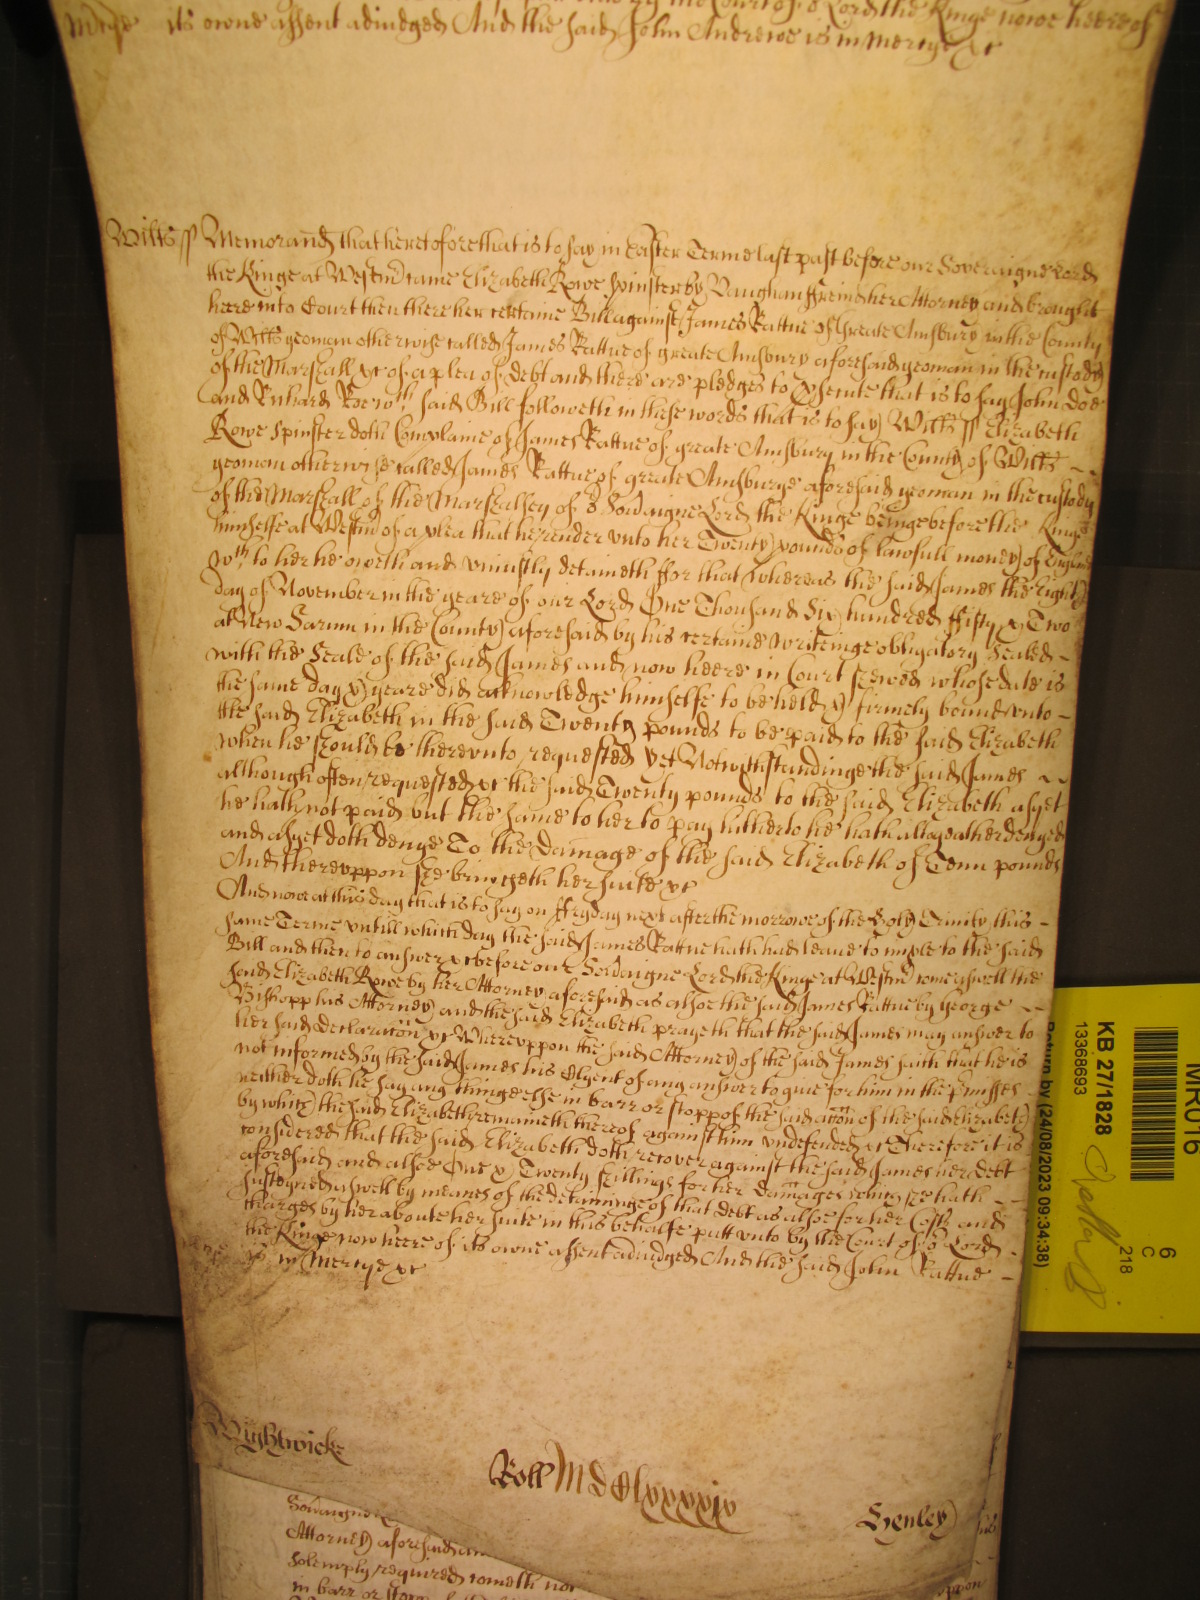 its owne assent adiudged And the said John Andrewe is in mercye &c
Wilts ss Memorand that heretofore that is to say in Easter Terme last past before our Soveraigne Lord
the Kinge at Westm came Elizabeth Rowe Spinster by Vaughan her Attorney and brought
heere into Court then there her certaine Bill against James Rattue of Greate Amsbury in the County
of Wilts yeoman otherwise called James Rattue of greate Amsbury aforesaid yeoman in the custody
of the Marshall &c of a plea of debt and there are pledges to prosecute that is to say John Doe
and Richard Roe wch said Bill followeth in these words that is to say Wilts ss Elizabeth
Rowe Spinster doth Complaine of James Rattue of greate Amsbury in the County of Wilts
yeoman otherwise called James Rattue of greate Amsburye aforesaid yeoman in the custody
of the Marshall of the Marshalsey of or Sovaigne Lord the Kinge beinge before the Kinge
himselfe at Westm of a plea that he render vnto her Twenty pounds of lawfull money of England
wch to her he oweth and vniustly detaineth ffor that whereas the said James the Eight
day of November in the yeare of our Lord One Thousand Six hundred ffifty & Two
at New Sarum in the County aforesaid by his certaine writeinge obligatory Sealed
with the Seale of the said James and now heere in Court shewed whose date is
the same day & yeare did acknowledge himselfe to be held & firmely bound vnto
the said Elizabeth in the said Twenty pounds to be paid to the said Elizabeth
when he should be therevnto requested yet Notwithstandinge the said James
although often requested &c the said Twenty pounds to the said Elizabeth as yet
he hath not paid but the same to her to pay hitherto he hath altogeather denyed
and as yet doth denye To the damage of the said Elizabeth of Tenn pounds
And therevppon she bringeth her suite &c
And now at this day that is to say on ffryday next after the morrowe of the Holy Trinity this
same Terme vntill which day the said James Rattue hath had leaue to imple to the said
Bill and then to answer &c before our Sovaigne Lord the Kinge at Westm come aswell the
said Elizabeth Rowe by her Attorney aforesaid as alsoe the said James Rattue by George
Bishopp his Attorney and the said Elizabeth prayeth that the said James may answer to
her said declaracon &c Wherevppon the said Attorney of the said James saith that he is
not informed by the said James his Clyent of any answer to giue for him in the pmisses
neither doth he say any thinge else in barr or stopp of the said accon of the said Elizabeth
by which the said Elizabeth remaineth thereof against him vndefended &c Therefore it is
considered that the said Elizabeth doth recover against the said James her debt
aforesaid and alsoe One & Twenty shillings for her damages which she hath
susteyned aswell by meanes of the detaininge of that debt as alsoe for her Costs and
charges by her about her suite in this behalfe putt vnto by the Court of or Lord
the Kinge now heere of its owne assent adiudged And the said John Rattue
is in Mercye &c
Wightwick
Roll MdClxxxxix
Henley
Attorney aforesaid
solemply required cometh not
in barr or
KB 27/1828
13368693
Return by (24/08/2023 09:34:38)
MR016
6
C
218